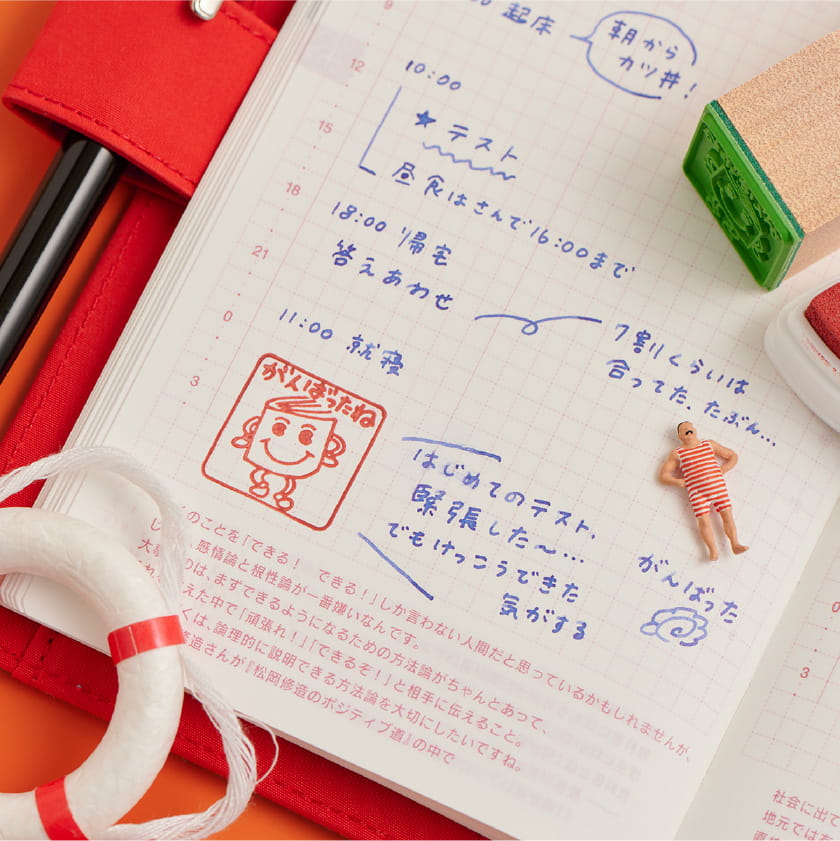 9
起床
朝から
カツ丼!
12
10:00
15
★テスト
昼食はさんで16:00まで
18
18:00 帰宅
答えあわせ
21
7割くらいは
合ってた、たぶん…
0
11:00 就寝
3
がんばったね
はじめてのテスト、
緊張した〜…
でもけっこうできた
気がする
がんばった
のことを「できる! できる!」しか言わない人間だと思っているかもしれませんが、
感情論と根性論が一番嫌いなんです。
のは、まずできるようになるための方法論がちゃんとあって、
えた中で「頑張れ!」「できるぞ!」と相手に伝えること。
くは、論理的に説明できる方法論を大切にしたいですね。
修造さんが『松岡修造のポジティブ道』の中で
0
3
社会に出て
地元では